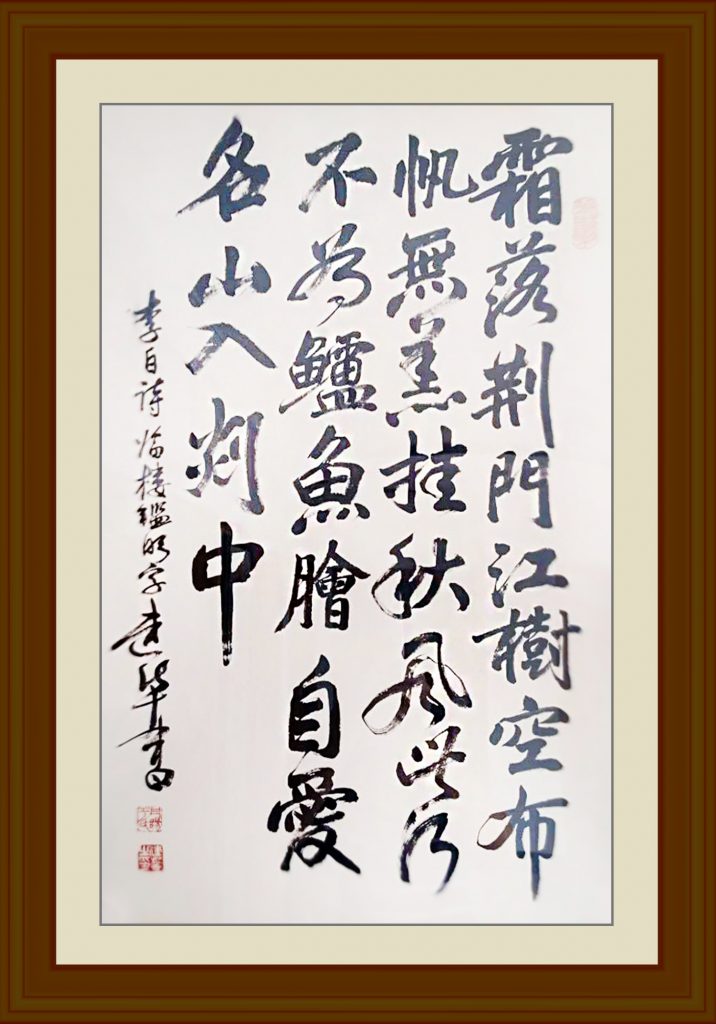 霜落荆門江樹空布
帆無恙挂秋風此行
不為鱸魚膾自愛
名山入剡中
李白詩临樓鑑明字 華書